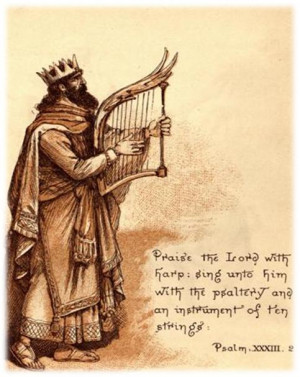 Praise the Lord with
harp: sing unto him
with the psaltery and
an instrument of ten
strings:
Psalm. XXXIII. 2